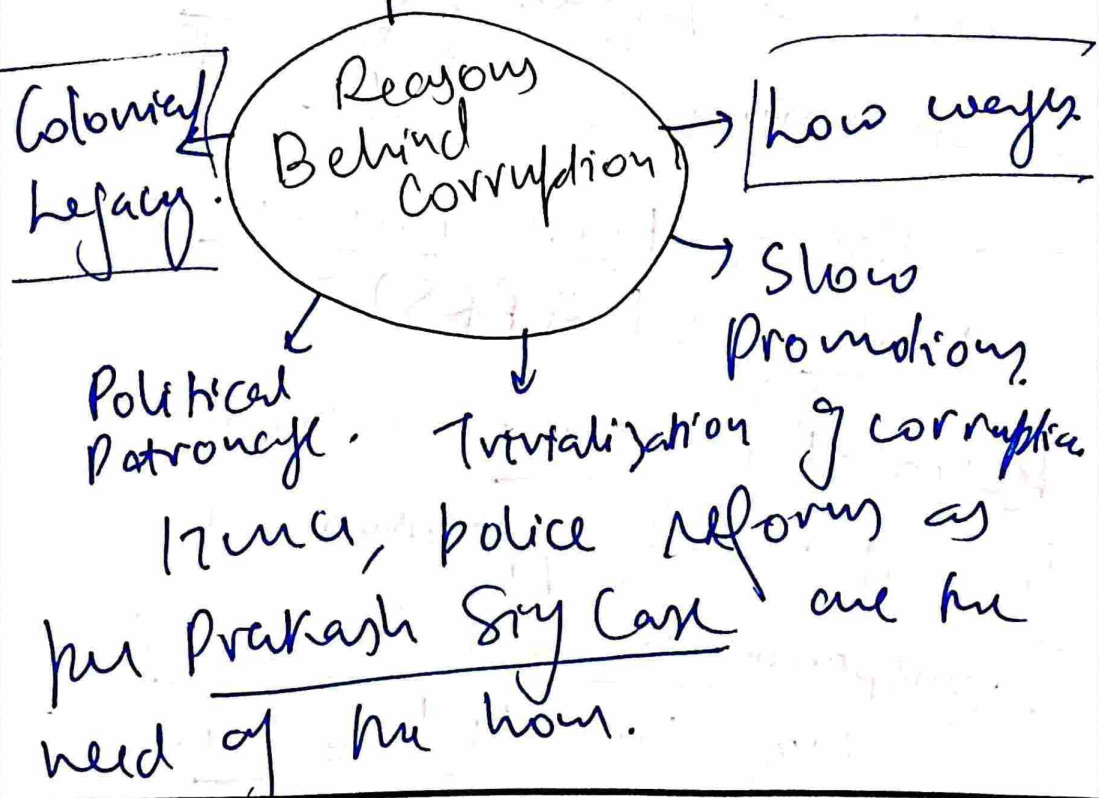 Reasons
Behind
Corruption
Colonial
Legacy.
Low wages.
Slow
Promotions.
Political
Patronage.
Trivialization of corruption
Hence, police reforms as
per Prakash Singh Case are the
need of the hour.